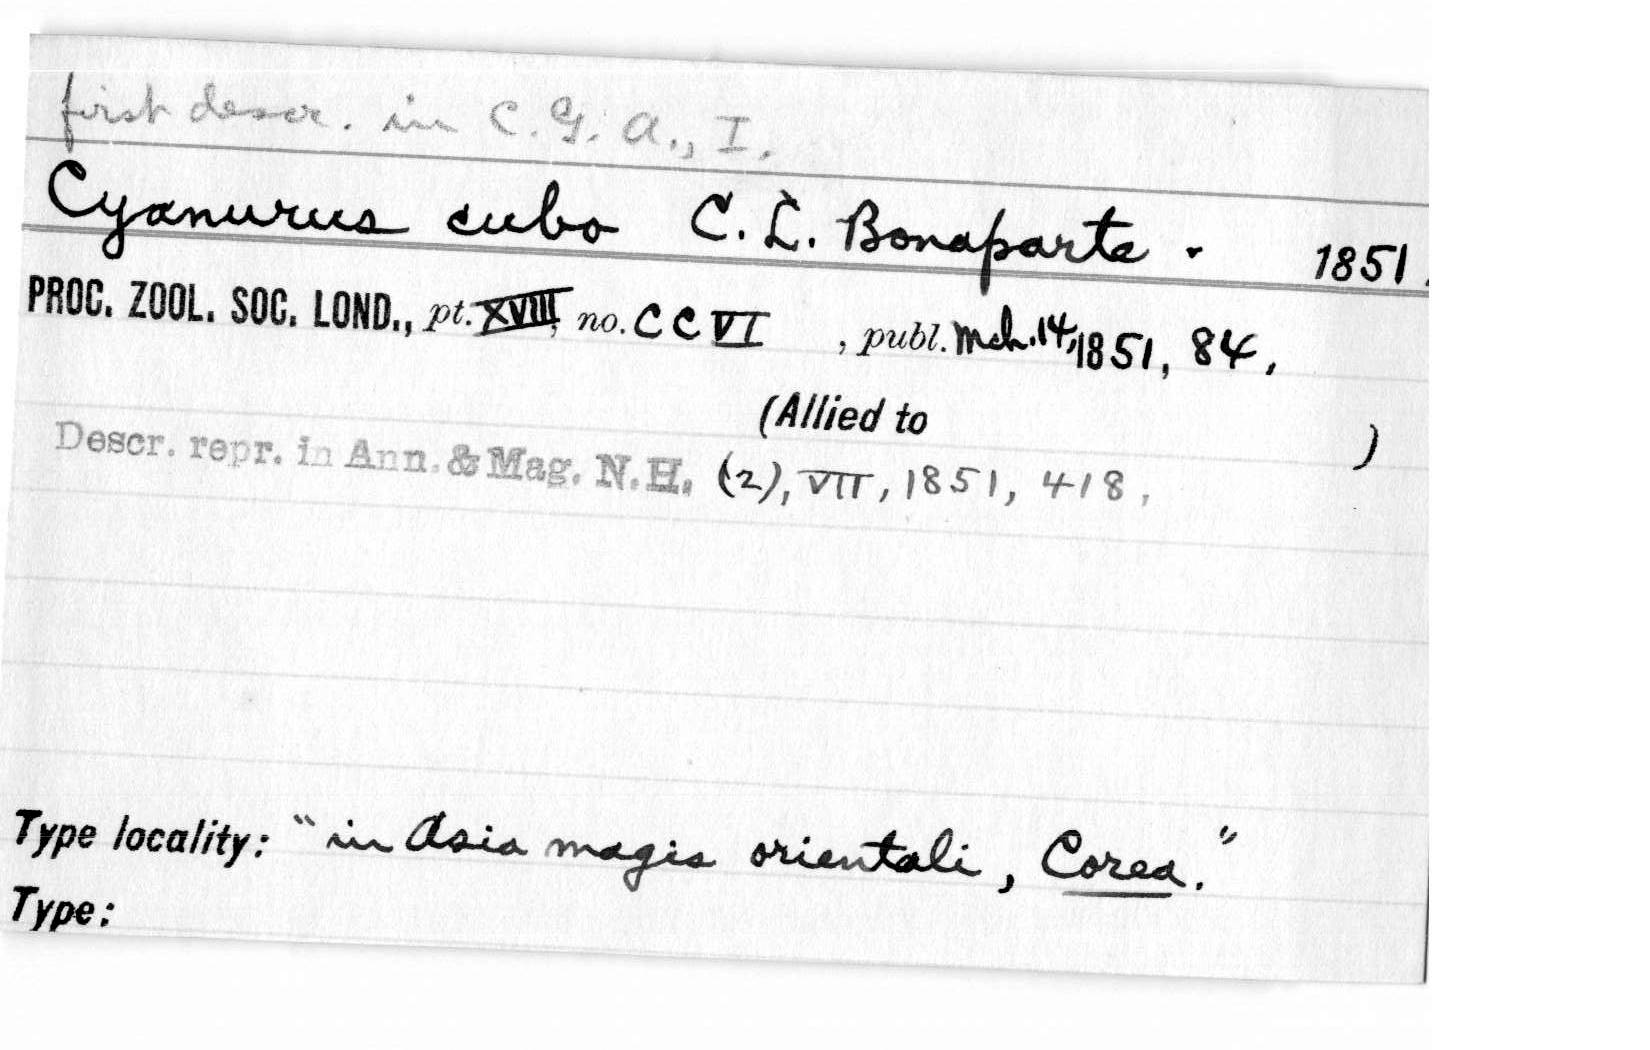 first descr. in C. G. A., I.
Cyanurus cubo C. L. Bonaparte. 1851.
PROC. ZOOL. SOC. LOND., pt. XVIII, no. CCVI , publ. Mch. 14, 1851, 84,
(Allied to )
Descr. repr. in Ann. & Mag. N.H. (2), VII, 1851, 418,
Type locality: "in Asia magis orientali, Corea."
Type: